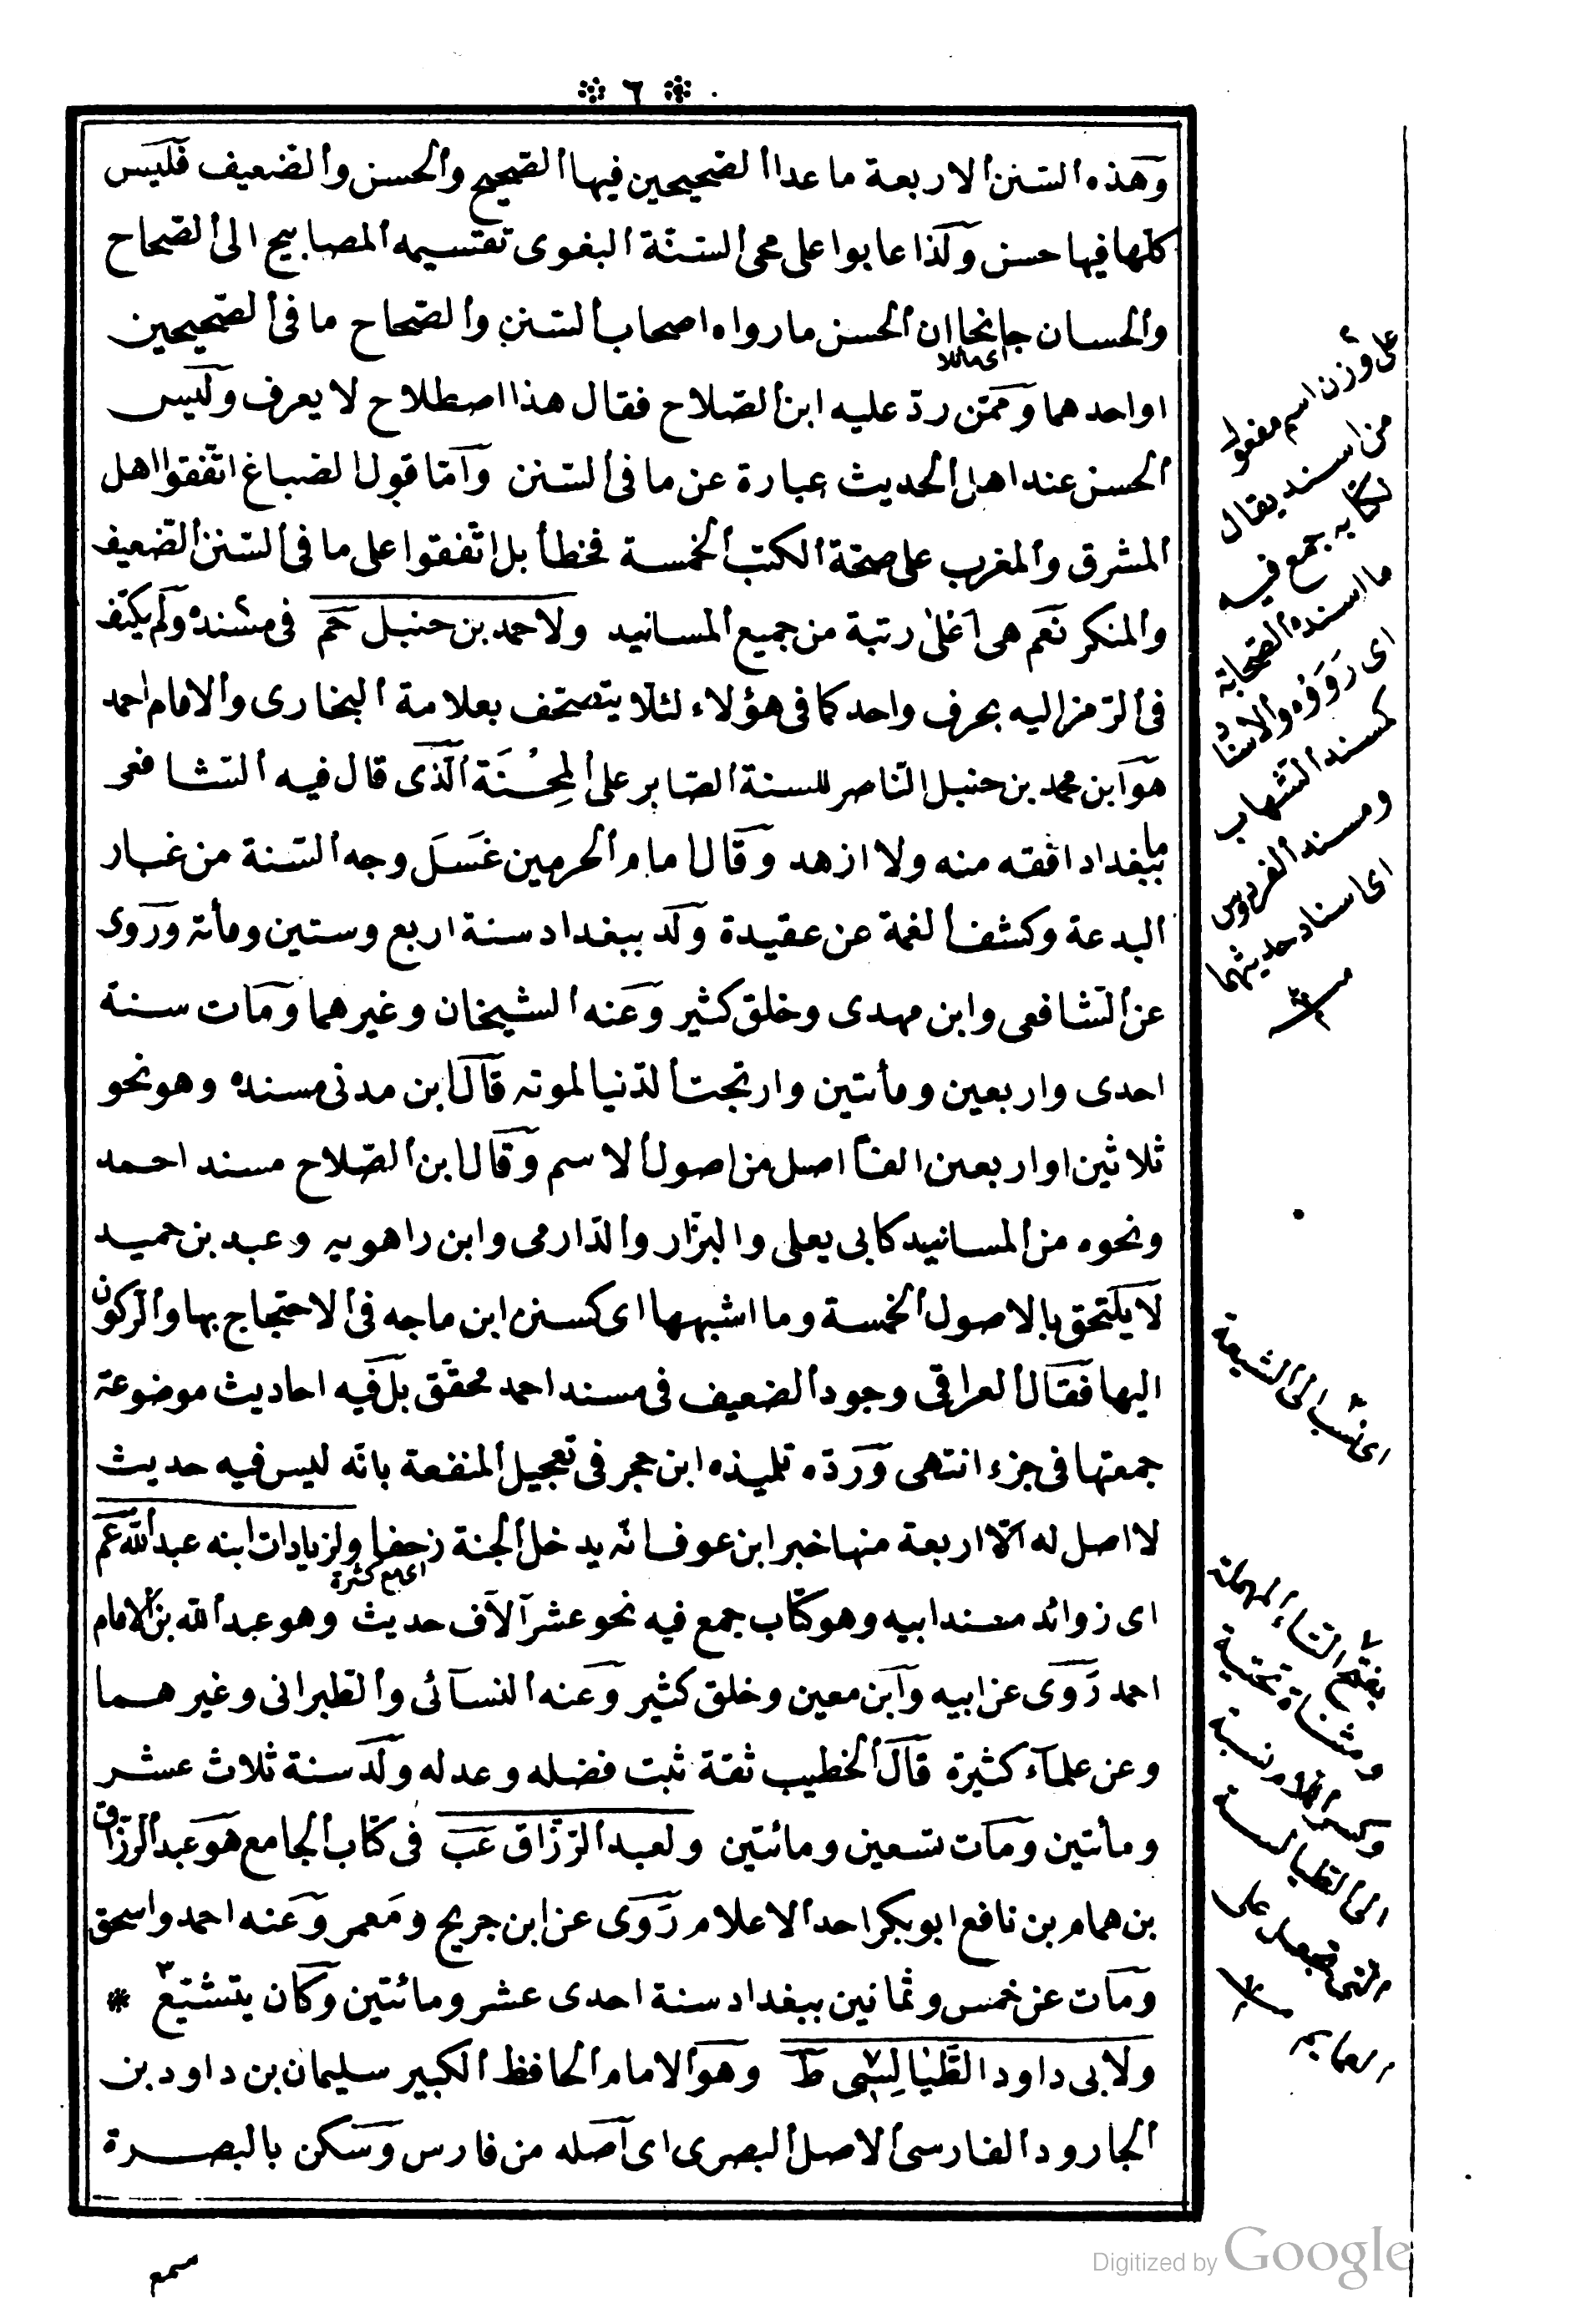 ٦
وهذه السنن الاربعة ما عدا الصحيحين فيها الصحيح والحسن والضعيف فليس
كلها فيها حسن ولذا عابوا على محى السنة البغوى تقسيمه المصابيح الى الصحاح
والحسان جانحا ان الحسن ما رواه اصحاب السنن والصحاح ما فى الصحيحين
اى مائلا
او احدهما وممن رد عليه ابن الصلاح فقال هذا اصطلاح لا يعرف وليس
الحسن عند اهل الحديث عبارة عن ما فى السنن واما قول الضباغ اتفقوا اهل
المشرق والمغرب على صحة الكتب الخمسة فخطأ بل اتفقوا على ما فى السنن الضعيف
والمنكر نعم هى اعلى رتبة من جميع المسانيد ولاحمد بن حنبل حم فى مسنده ولم يكتف
فى الرمز اليه بحرف واحد كما فى هؤلاء لئلا يتصحف بعلامة البخارى والامام احمد
هو ابن محمد بن حنبل الناصر للسنة الصابر على المحنة الذى قال فيه الشافعى
ما ببغداد افقه منه ولا ازهد وقال امام الحرمين غسل وجه السنة من غبار
البدعة وكشف الغمة عن عقيدة ولد ببغداد سنة اربع وستين ومأته وروى
عن الشافعى وابن مهدى وخلق كثير وعنه الشيخان وغيرهما ومات سنة
احدى واربعين ومأتين وارتجت الدنيا لموته قال ابن مدنى مسنده وهو نحو
ثلاثين او اربعين الفا اصل من اصول الاسم وقال ابن الصلاح مسند احمد
ونحوه من المسانيد كابى يعلى والبزار والدارمى وابن راهويه وعبد بن حميد
لا يلتحق بالاصول الخمسة وما اشبهها اى كسنن ابن ماجه فى الاحتجاج بها والركون
اليها فقال العراقى وجود الضعيف فى مسند احمد محقق بل فيه احاديث موضوعة
جمعتها فى جزء انتهى ورده تلميذه ابن حجر فى تعجيل المنفعة بانه ليس فيه حديث
لا اصل له الا اربعة منها خبر ابن عوف انه يدخل الجنة زحفا ولزيادات ابنه عبد الله عم
اى مع كثرة
اى زوائد مسند ابيه وهو كتاب جمع فيه نحو عشر آلاف حديث وهو عبد الله بن الامام
احمد روى عن ابيه وابن معين وخلق كثير وعنه النسآئى والطبرانى وغيرهما
وعن علمآء كثيرة قال الخطيب ثقة ثبت فضله وعدله ولد سنة ثلاث عشر
ومأتين ومات تسعين ومائتين ولعبد الرزاق عب فى كتاب الجامع هو عبد الرزاق
بن همام بن نافع ابو بكر احد الاعلام روى عن ابن جريح ومعمر وعنه احمد واسحق
ومات عن خمس وثمانين ببغداد سنة احدى عشر ومائتين وكان يتشيع ٣
ولابى داود الطيالسى ط وهو الامام الحافظ الكبير سليمان بن داود بن
الجارود الفارسى الاصل البصرى اى اصله من فارس وسكن بالبصرة
على وزن اسم مفعول
من اسند يقال
لكتابه جمع فيه
ما اسنده الصحابة
اى رووه والاسناد
كمسند الشهاب
ومسند الفردوس
اى اسناد حديثهما
اى نسب الى الشيعة
بفتح الطاء المهملة
ومثناة تحتية
وكسر اللام نسبة
الى الطيالسة
العمايم
سمع
Digitized by Google